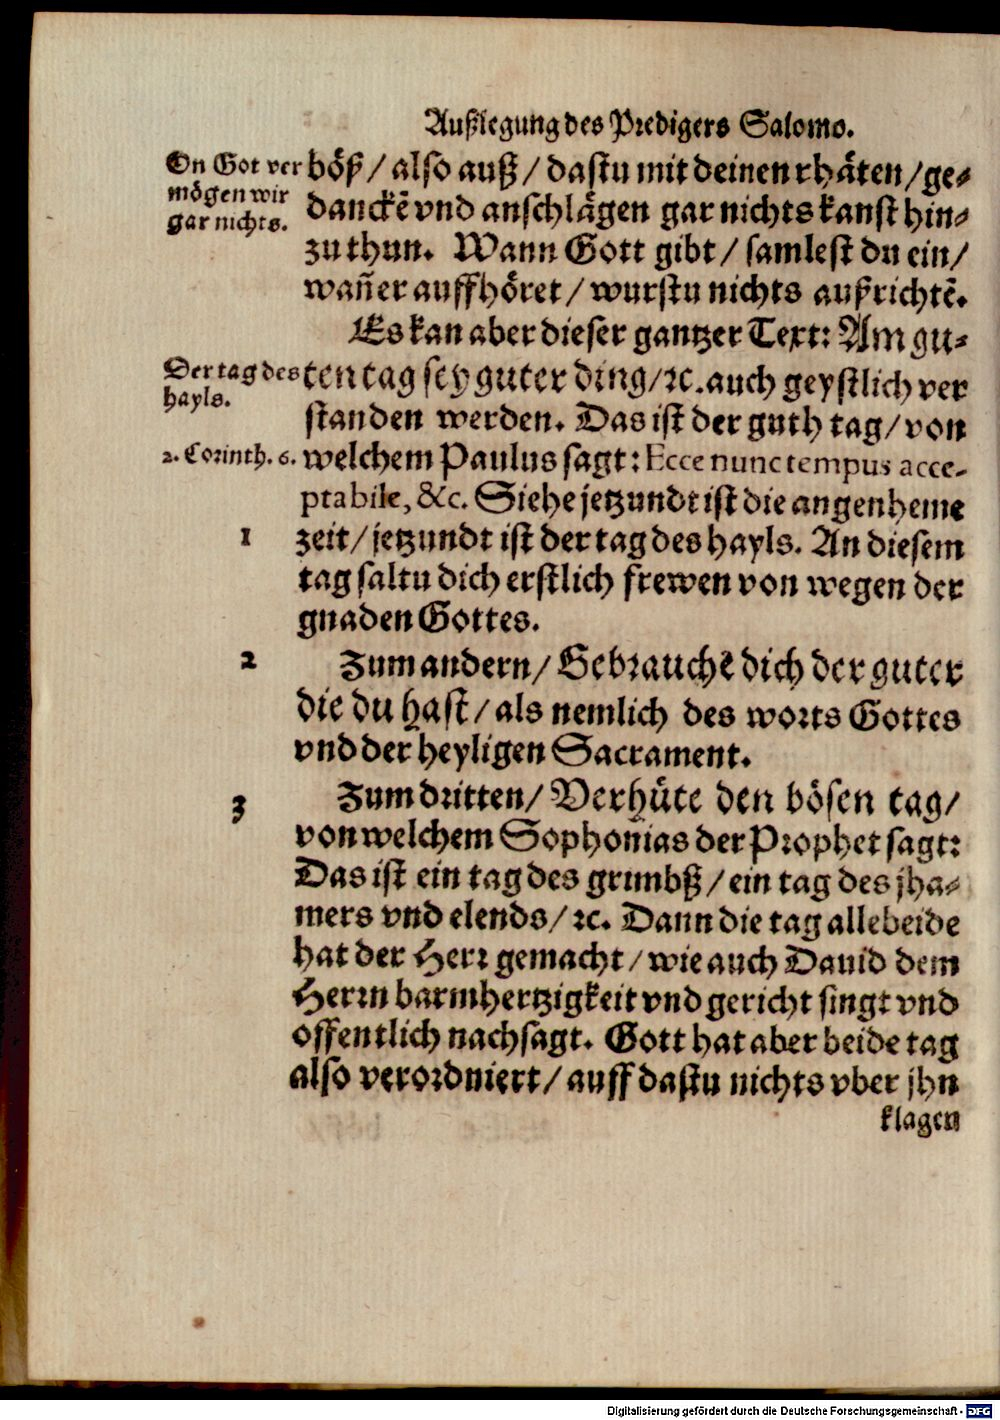 Außlegung des Predigers Salomo.
On Got ver
mögen wir
gar nichts.
böß / also auß / dastu mit deinen rhäten / ge⸗
danckẽ vnd anschlägen gar nichts kanst hin⸗
zu thun. Wann Gott gibt / samlest du ein /
wañ er auffhöret / wurstu nichts außrichtẽ.
Es kan aber dieser gantzer Text: Am gu⸗
Der tag des
hayls.
ten tag sey guter ding / ꝛc. auch geystlich ver
standen werden. Das ist der guth tag / von
2. Corinth. 6.
welchem Paulus sagt: Ecce nunc tempus acce-
ptabile, &c. Siehe jetzundt ist die angenheme
1
zeit / jetzundt ist der tag des hayls. An diesem
tag saltu dich erstlich frewen von wegen der
gnaden Gottes.
2
Zum andern / Gebrauche dich der guter
die du hast / als nemlich des worts Gottes
vnd der heyligen Sacrament.
3
Zum dritten / Verhüte den bösen tag /
von welchem Sophonias der Prophet sagt:
Das ist ein tag des grimbß / ein tag des jha⸗
mers vnd elends / ꝛc. Dann die tag allebeide
hat der Herr gemacht / wie auch Dauid dem
Herrn barmhertzigkeit vnd gericht singt vnd
offentlich nachsagt. Gott hat aber beide tag
also verordniert / auff dastu nichts vber jhn
klagen
Digitalisierung gefördert durch die Deutsche Forschungsgemeinschaft - DFG